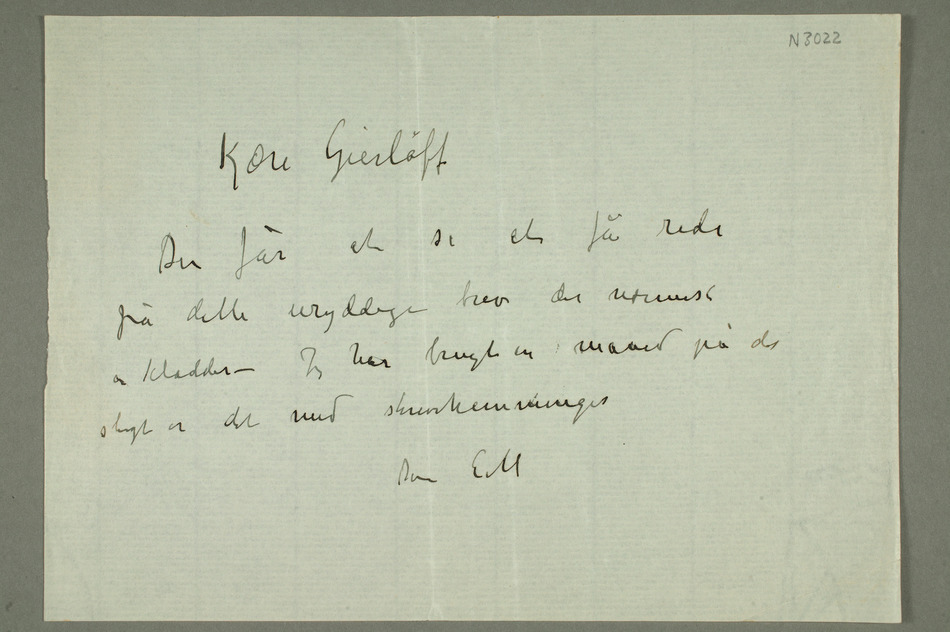 N 3022
Kære Gierløff
Du får at se at få rede
på dette uryddige brev der nærmest
er kladder – Jeg har brugt en måned på det
slugt er det med skrivehemninger
Din E. M